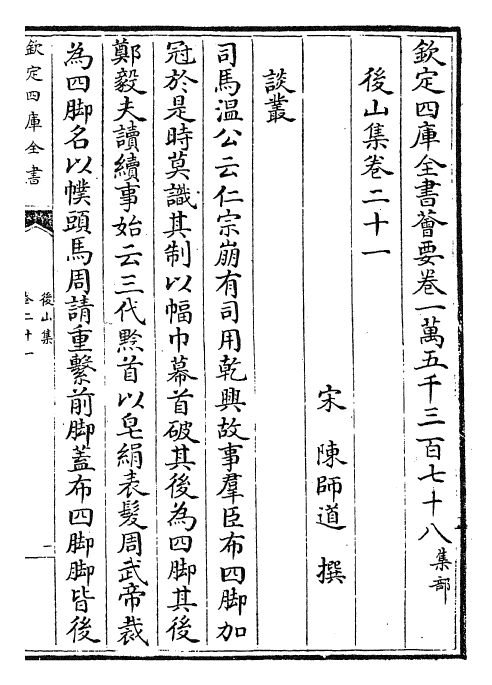 欽定四庫全書薈要卷一萬五千三百七十八集部
後山集卷二十一
宋 陳師道 撰
談叢
司馬溫公云仁宗崩有司用乾興故事羣臣布四脚加
冠於是時莫識其制以幅巾幕首破其後為四脚其後
鄭毅夫讀續事始云三代黔首以皂絹表髮周武帝裁
為四脚名以幞頭馬周請重繫前脚蓋布四脚脚皆後
欽定四庫全書
後山集
卷二十一